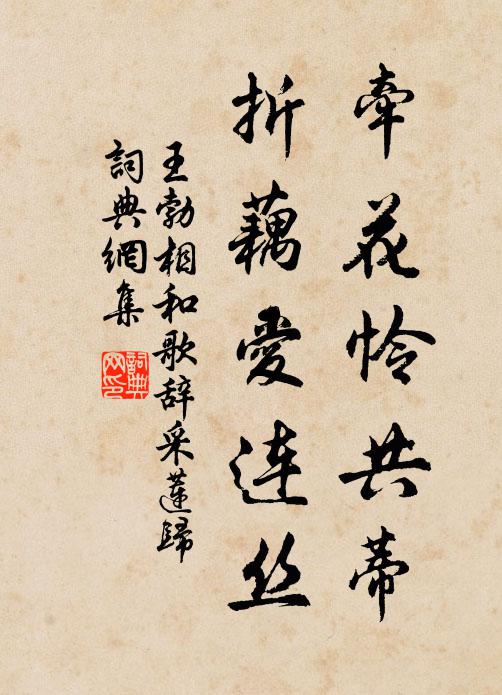 牵花怜共蒂
折藕爱连丝
王勃相和歌辞采莲歸
詞典網集
詞典网印